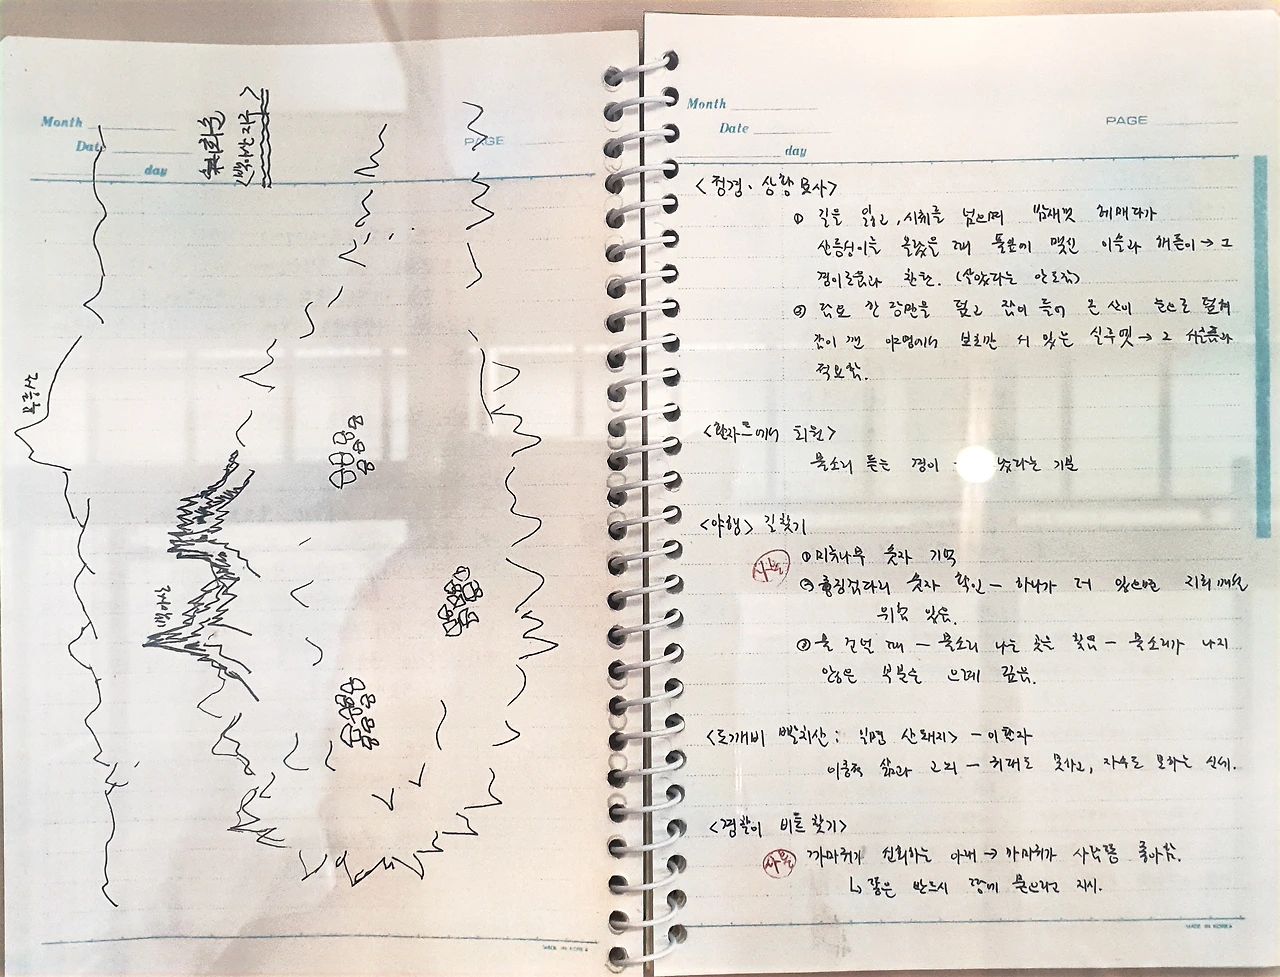 Month
Date
day
PAGE
<백아산 지구>
백아산
MADE IN KOREA
Month
Date
day
PAGE
<정경·상황 묘사>
① 길을 잃고, 시체를 넘으며 밤새껏 헤매다가
산등성이를 올랐을 때 풀잎에 맺힌 이슬과 해돋이 → 그
경이로움과 환희. (살았다는 안도감)
② 담요 한 장만을 덮고 잠이 들어 온 산이 눈으로 덮여
잠이 깬 여명에서 보초만 서 있는 실루엣 → 그 서글픔과
적요함.
<환자트에서 회원>
물소리 듣는 경이 났다는 기분
<야행> 길찾기
① 나무 숫자 기억
② 징검다리 숫자 확인 - 하나가 더 있으면 지뢰 매설
위험 있음.
③ 물 건널 때 - 물소리 나는 곳은 얕음 - 물소리가 나지
않은 부분은 으레 깊음.
<도깨비 빨치산: 일명 산돼지> - 이환자
이중적 삶과 고뇌 - 취대도 못하고, 자수도 못하는 신세.
<경찰이 비트 찾기>
까마귀가 선회하는 아래 → 까마귀가 사람똥 좋아함.
↳ 똥은 반드시 땅에 묻으라고 지시.
MADE IN KOREA